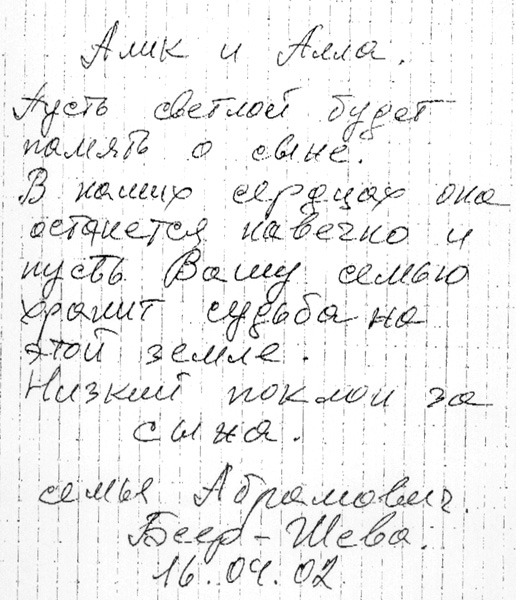 Алик и Алла.
Пусть светлой будет
память о сыне.
В наших сердцах она
останется навечно и
пусть Вашу семью
хранит судьба на
этой земле.
Низкий поклон за
сына.
семья Абрамович.
Беер-Шева.
16.04.02